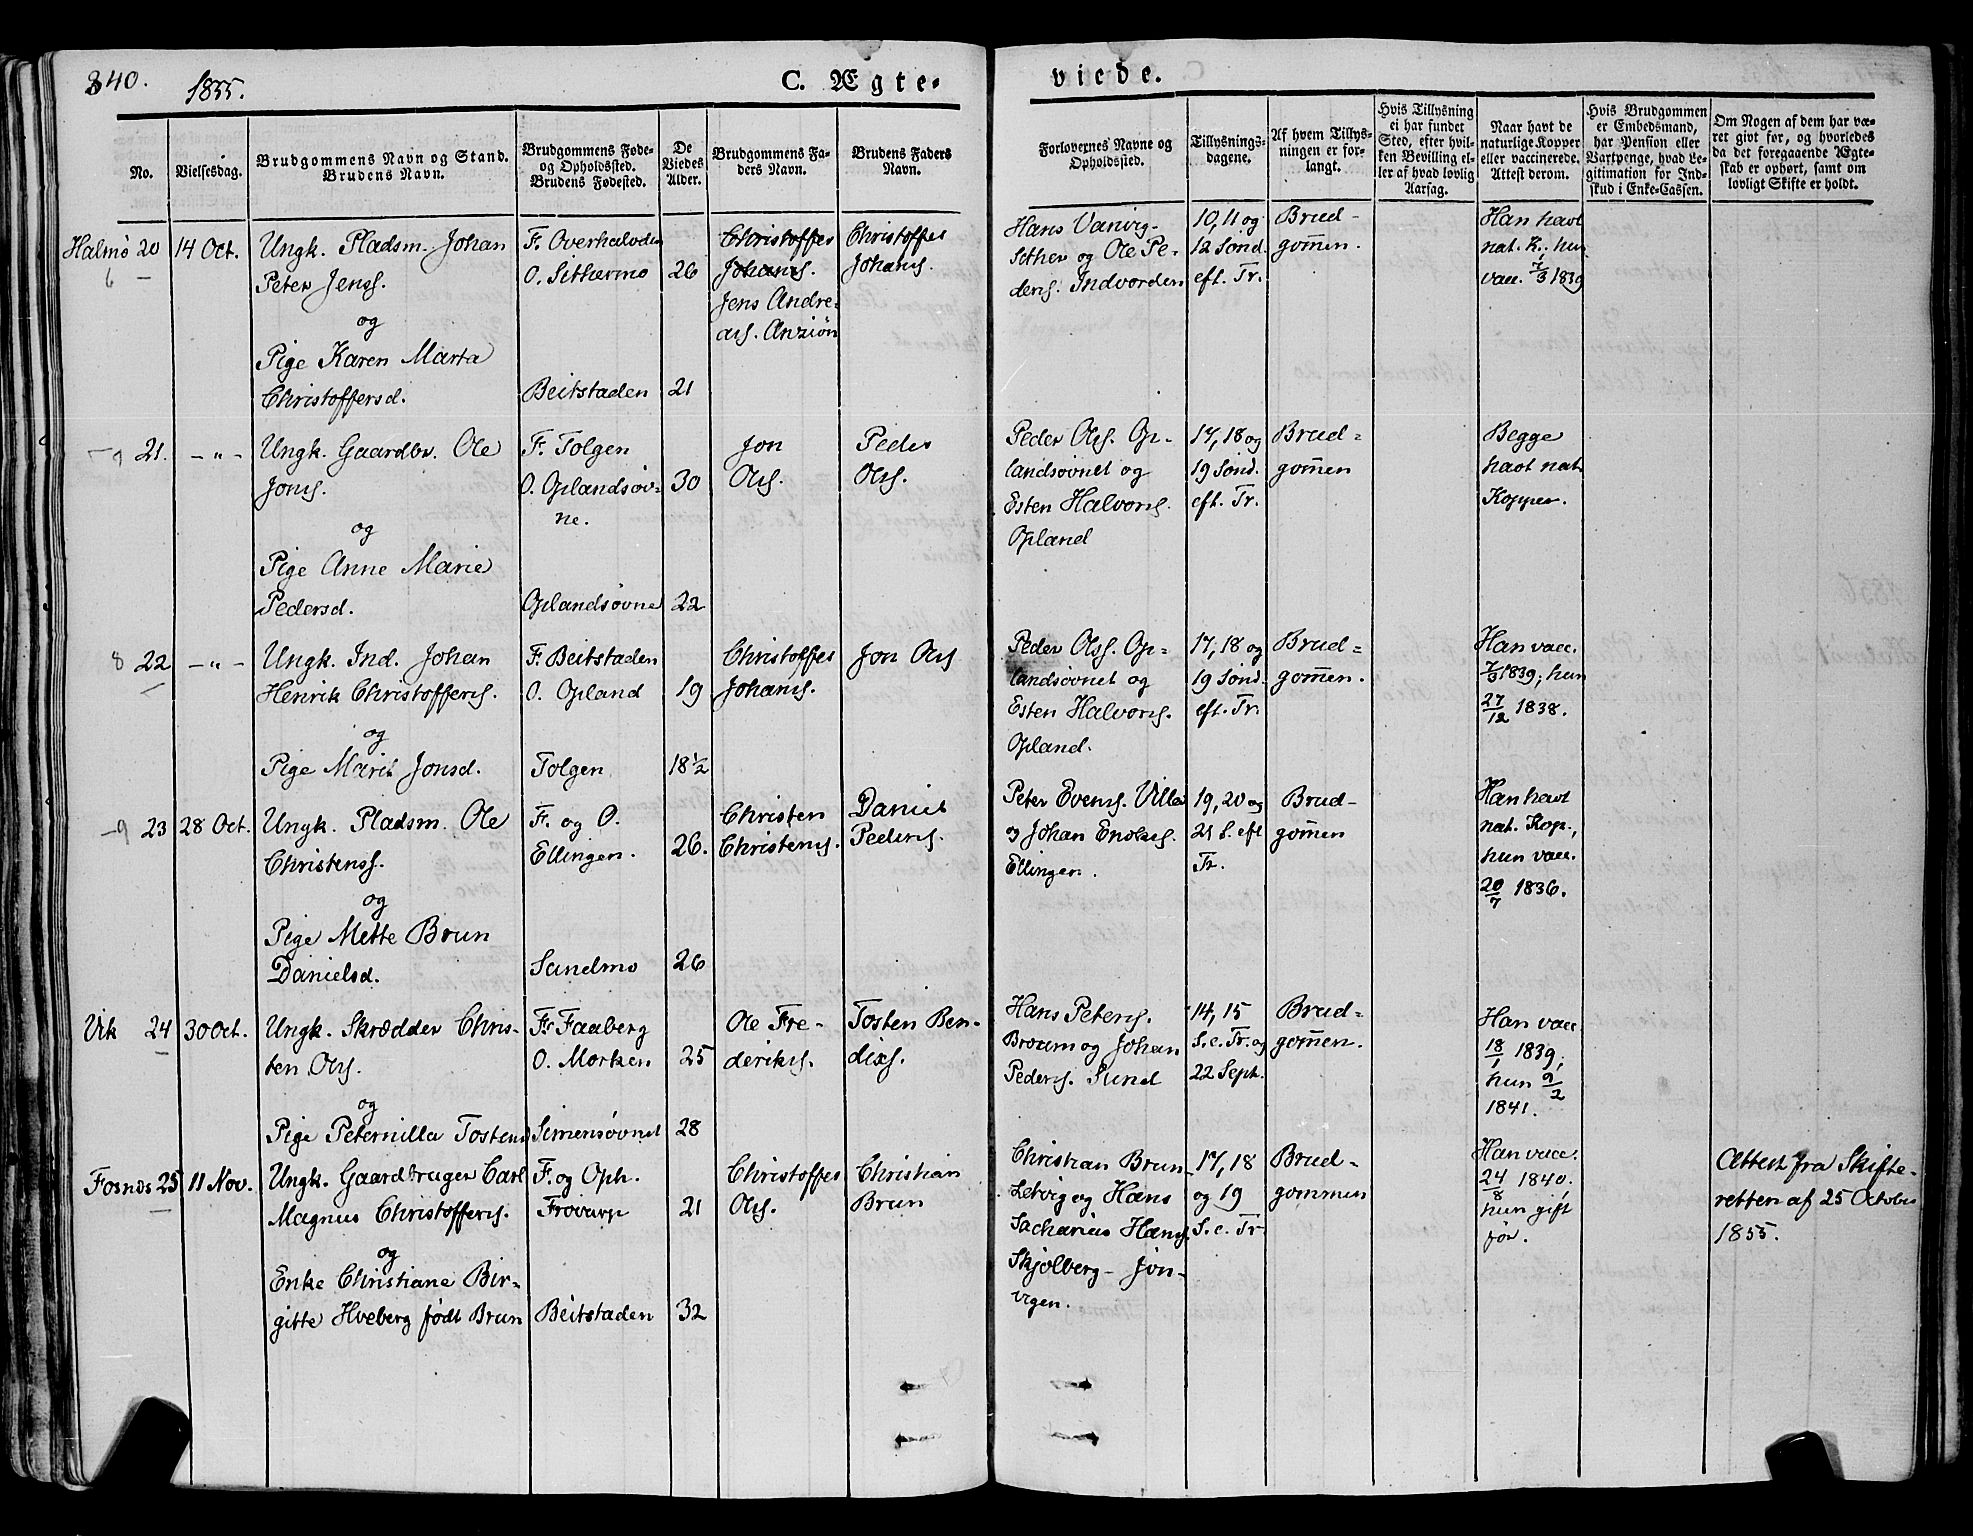 340.
1855.
C. Ægte-
viede.
No.
Vielsesdag.
Brudgommens Navn og Stand.
Brudens Navn.
Brudgommens Føde-
og Opholdssted.
Brudens Fødested.
De
Viedes
Alder.
Brudgommens Fa-
ders Navn.
Brudens Faders
Navn.
Forlovernes Navne og
Opholdssted.
Tillysnings-
dagene.
Af hvem Tillys-
ningen er for-
langt.
Hvis Tillysning
ei har fundet
Sted, efter hvil-
ken Bevilling el-
ler af hvad lovlig
Aarsag.
Naar havt de
naturlige Kopper
eller vaccinerede.
Attest derom.
Hvis Brudgommen
er Embedsmand,
har Pension eller
Vartpenge, hvad Le-
gitimation for Ind-
skud i Enke-Cassen.
Om Nogen af dem har væ-
ret givt før, og hvorledes
da det foregaaende Ægte-
skab er ophørt, samt om
lovligt Skifte er holdt.
Halmø 20
6
14 Oct.
Ungk. Pladsm. Johan
Peter Jenss.
og
Pige Karen Marta
Christoffersd.
F. Overhalvden
O. Sithermo
Beitstaden
26
21
Christoffer
Johans.
Jens Andre-
ass. Anziøn
Christoffer
Johans.
Hans Vanvig-
Sether og Ole Pe-
ders. Indvorden
10, 11 og
12 Sønd.
eft. Tr.
Brud-
gom̄en.
Han havt
nat. K.; hun
vacc. 7/3 1839
9
21.
-"-
Ungk. Gaardbr. Ole
Jons.
og
Pige Anne Marie
Pedersd.
F. Tolgen
O. Oplandsøv-
ne.
Oplandsøvne
30
22
Jon
Ols.
Peder
Ols.
Peder Ols. Op-
landsøvnet og
Esten Halvors.
Opland
17, 18 og
19 Sønd.
eft. Tr.
Brud=
gom̄en
Begge
havt nat.
Kopper.
8
22
-"-
Ungk. Ind. Johan
Henrik Christoffers.
og
Pige Marit Jonsd.
F. Beitstaden
O. Opland
Tolgen
19
18 1/2
Christoffer
Johans.
Jon Ols
Peder Ols. Op-
landsøvnet og
Esten Halvors.
Opland.
17, 18 og
19 Sønd.
eft. Tr.
Brud=
gom̄en.
Han vacc.
7/3 1839; hun
27/12 1838.
9
23
28 Oct.
Ungk. Pladsm. Ole
Christenss.
og
Pige Mette Brun
Danielsd.
F. og O.
Ellingen.
Sandmo
26.
26
Christen
Christens.
Daniel
Peders.
Peter Evens. Villa
og Johan Enoks.
Ellingen.
19, 20 og
21 S. eft
Tr.
Brud-
gom̄en
Han havt
nat. Kop.,
hun vacc.
20/7 1836.
Vik 24
30 Oct.
Ungk. Skrædder Chris-
ten Ols.
og
Pige Peternilla Tostens
F. Faaberg
O. Morken
Simensøvnet
25
28
Ole Fre-
deriks.
Tosten Ben-
dixs.
Hans Peters.
Broum og Johan
Peders. Sund
14, 15
S. e. Tr. og
22 Sept.
Brud=
gom̄en.
Han vacc.
18/1 1839;
hun 9/2
1841.
Fosnes 25
11 Nov.
Ungk. Gaardbruger Carl
Magnus Christoffers.
og
Enke Christiane Bir-
gitte Hveberg født Brun
F. og Oph.
Beitstaden
21
32
Christoffer
Ols.
Christian
Brun
Christian Brun
Letvig og Hans
Sacharias Hans.
Skjølberg - Jøn-
vigen.
17, 18
og 19
S. e. Tr.
Brud-
gommen
Han vacc.
24/8 1840.
hun gift
før.
Attest fra Skifte-
retten af 25 October
1855.